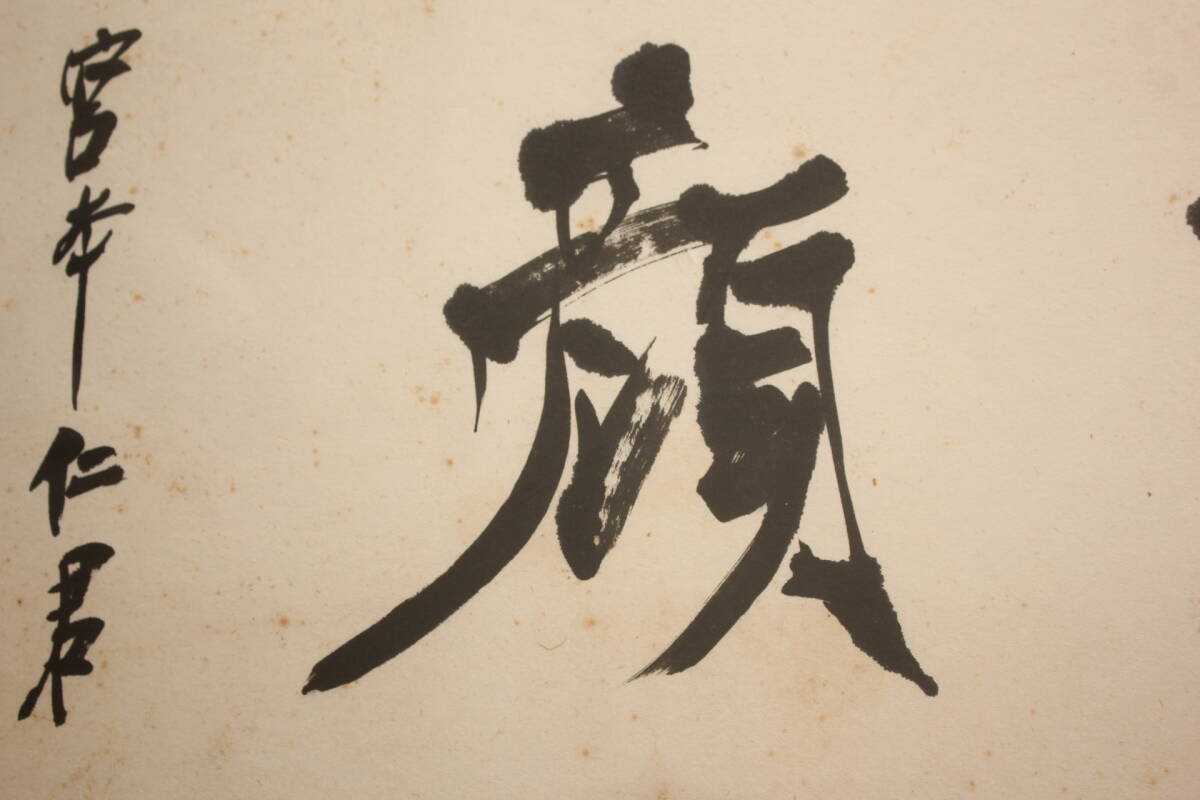 顔
宮本仁君